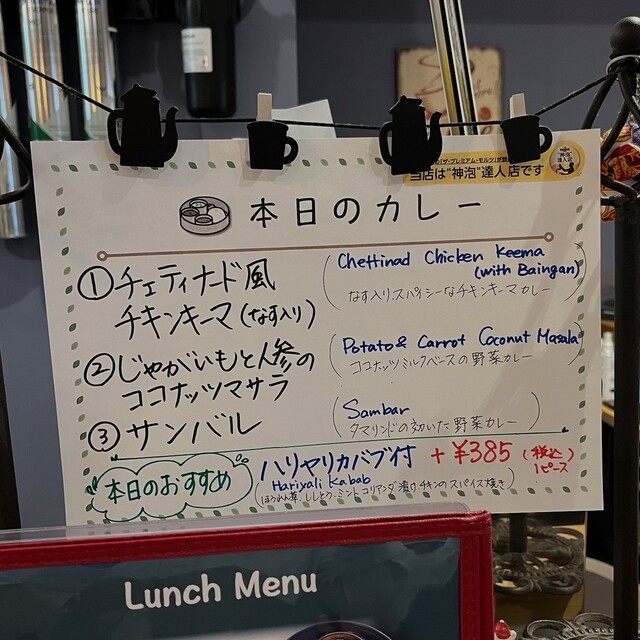 当店は"神泡"達人店です
本日のカレー
① チェティナード風
チキンキーマ(なす入り)
(Chettinad Chicken Keema
(with Baingan)
なす入り.スパイシーなチキンキーマカレー)
② じゃがいもと人参の
ココナッツマサラ
(Potato & Carrot Coconut Masala
ココナッツミルクベースの野菜カレー)
③ サンバル
(Sambar
タマリンドの効いた野菜カレー)
本日のおすすめ
ハリヤリカバブ付 + ¥385 (税込)
1ピース
Hariyali Kabab
(ほうれん草、ししとう、ミント、コリアンダー漬けチキンのスパイス焼き)
Lunch Menu